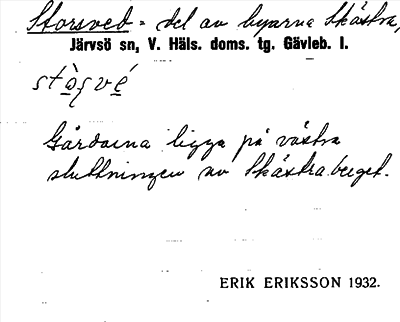 Storsved = del av byarna Skästra,
Järvsö sn, V. Häls. doms. tg. Gävleb. l.
stò̱ṣvé̱
Gårdarna ligga på västra
sluttningen av Skästraberget.
ERIK ERIKSSON 1932.